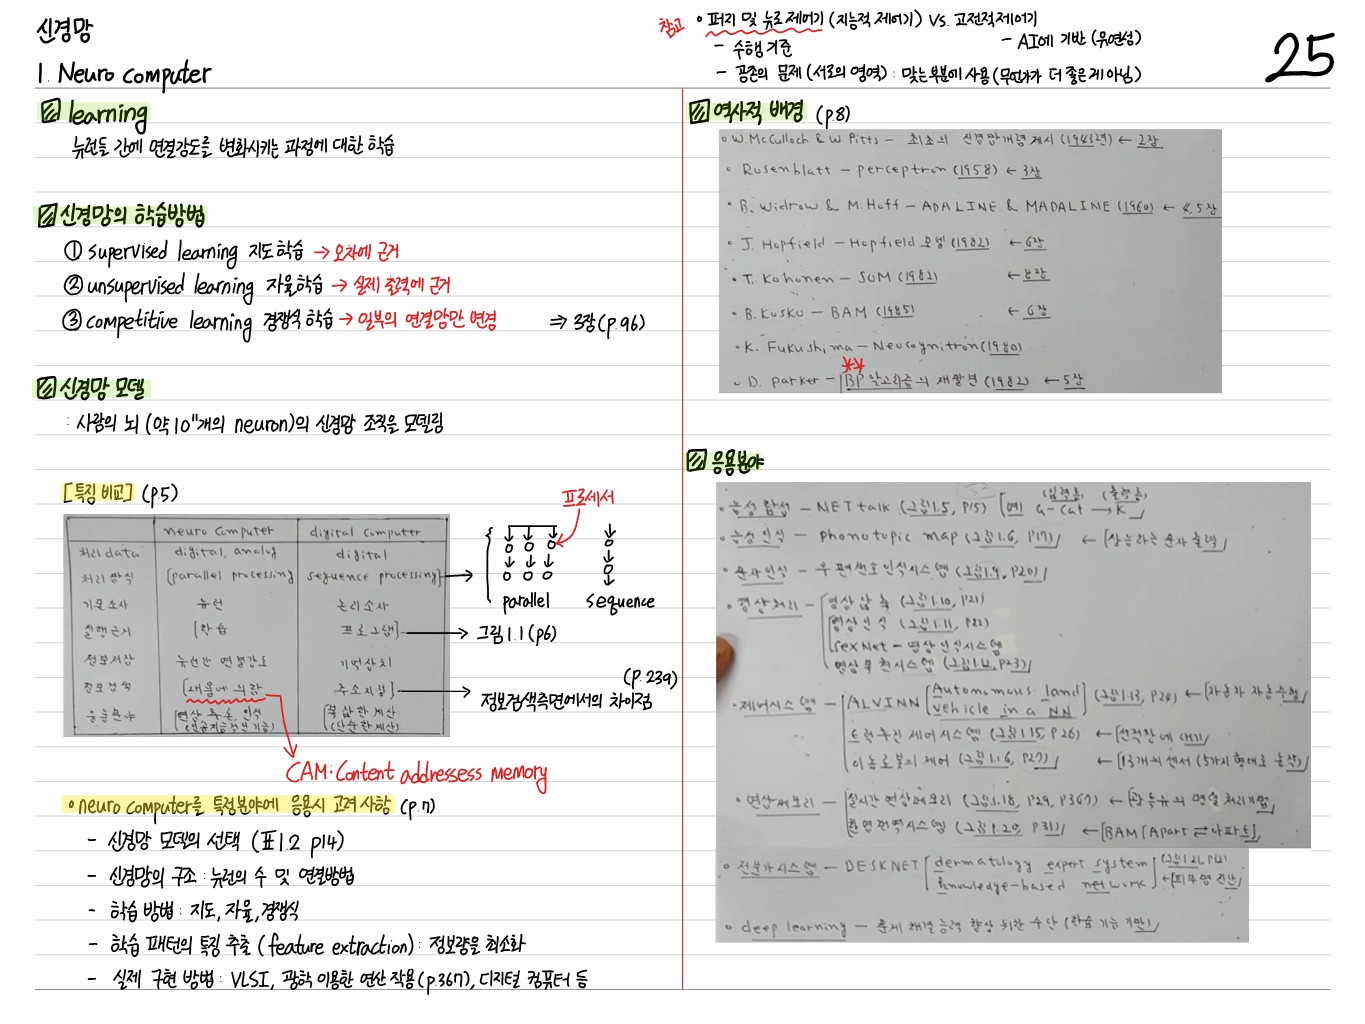 신경망
1. Neuro computer
참고 ∘ 퍼지 및 뉴로 제어기 (지능적 제어기) VS. 고전적제어기
- 수행 기준
- AI에 기반 (유연성)
- 공존의 문제 (서로의 영역) : 맞는 부분에 사용 (무언가가 더 좋은게 아님)
25
learning
뉴런들 간에 연결강도를 변화시키는 과정에 대한 학습
신경망의 학습방법
① supervised learning 지도학습 → 오차에 근거
② unsupervised learning 자율학습 → 실제 출력에 근거
③ competitive learning 경쟁식 학습 → 일부의 연결망만 변경 ⇒ 3장(p.96)
신경망 모델
: 사람의 뇌 (약 10¹¹개의 neuron)의 신경망 조직을 모델링
[특징 비교] (p.5)
neuro computer digital computer
처리 data digital, analog digital
처리 방식 [parallel processing sequence processing]
기본소자 뉴런 논리소자
실행근거 [학습 프로그램] → 그림 1.1 (p6)
정보저장 뉴런간 연결강도 기억장치
정보검색 [내용에 의함 주소지정] → 정보검색측면에서의 차이점 (p.239)
응용분야 [연상, 추론, 인식 [복잡한 계산
(인공지능적인 기능) (단순한 계산)
프로세서
parallel sequence
CAM : Content addressess memory
∘ neuro computer를 특정분야에 응용시 고려 사항 (p.7)
- 신경망 모델의 선택 (표1.2 p14)
- 신경망의 구조 : 뉴런의 수 및 연결방법
- 학습 방법 : 지도, 자율, 경쟁식
- 학습 패턴의 특징 추출 (feature extraction) : 정보량을 최소화
- 실제 구현 방법 : VLSI, 광학 이용한 연산 작용(p.367), 디지털 컴퓨터 등
역사적 배경 (p8)
∘ W. McCulloch & W. Pitts - 최초의 신경망개념 제시 (1943년) ← 2장
∘ Rosenblatt - perceptron (1958) ← 3장
∘ B. Widrow & M. Hoff - ADALINE & MADALINE (1960) ← 4,5장
∘ J. Hopfield - Hopfield 모델 (1982) ← 6장
∘ T. Kohonen - SOM (1982) ← 8장
∘ B. Kosko - BAM (1985) ← 6장
∘ K. Fukushima - Neocognitron (1980)
∘ D. Parker - BP 알고리즘의 재발견 (1982) ← 5장
응용분야
∘ 음성 합성 - NET talk (그림1.5, p15) [예] (입력층) a-cat → (출력층) K]
∘ 음성 인식 - phonotopic map (그림1.6, p17) ← [상응하는 문자 출력]
∘ 문자인식 - 우편번호 인식시스템 (그림1.9, p20)
∘ 영상처리 - 영상 압축 (그림1.10, p21)
영상 인식 (그림1.11, p22)
SexNet - 영상 인식시스템
영상 복원시스템 (그림1.12, p23)
∘ 제어시스템 - ALVINN [Autonomous land vehicle in a NN] (그림1.13, p24) ← [자동차 자동주행]
트럭 후진 제어시스템 (그림1.15, p26) ← [선적장에 대기]
이동로봇의 제어 (그림1.16, p27) ← [13개의 센서 (5가지 형태로 동작)]
∘ 연상메모리 - 실시간 연상메모리 (그림1.18, p29, p367) ← [광학의 병렬 처리기법]
한영번역시스템 (그림1.20, p31) ← [BAM (Apart ⇄ 아파트)]
∘ 전문가시스템 - DESKNET [dermatology expert system (그림1.21, p32)
knowledge-based network] ← [피부병 진단]
∘ deep learning - 문제 해결 능력 향상 위한 수단 (학습 기능 기반)